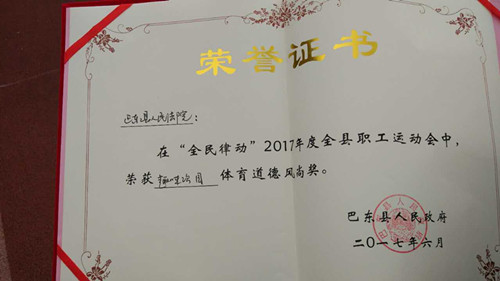 荣誉证书
巴东县人民法院：
在“全民律动”2017年度全县职工运动会中，
荣获 体育道德风尚奖。
巴东县人民政府
二〇一七年六月